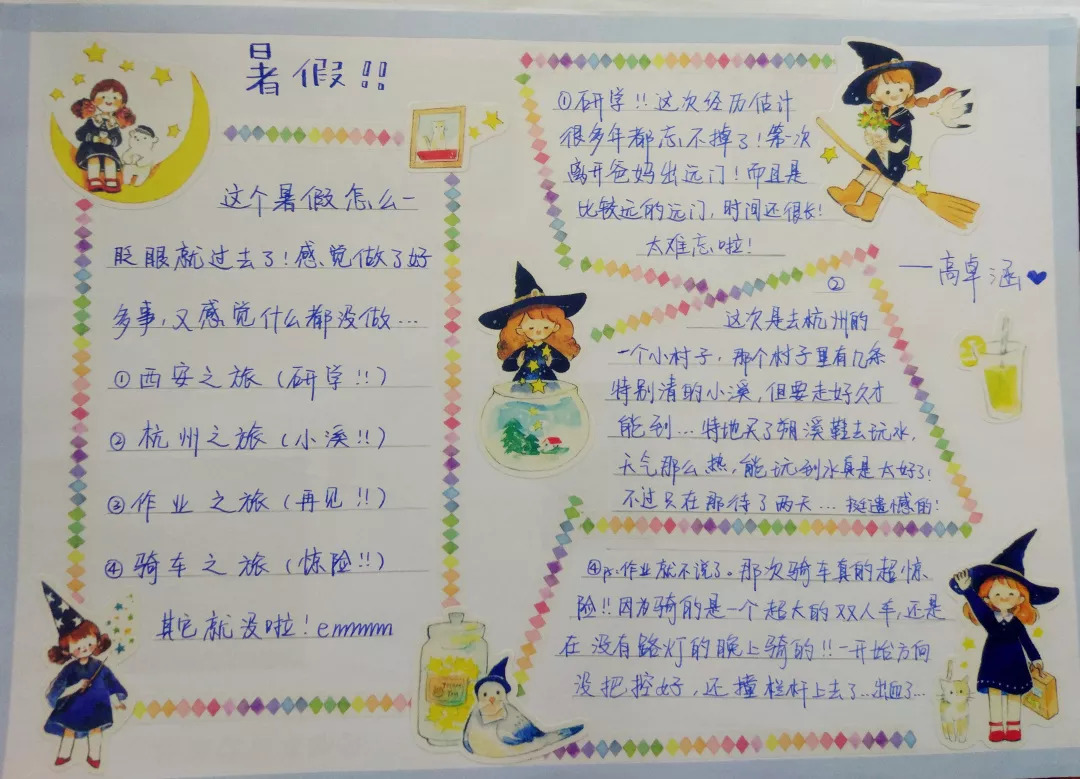 暑假!!
这个暑假怎么一
眨眼就过去了!感觉做了好
多事,又感觉什么都没做...
①西安之旅(研学!!)
②杭州之旅(小溪!!)
③作业之旅(再见!!)
④骑车之旅(惊险!!)
其它就没啦!emmmm
①研学!!这次经历估计
很多年都忘不掉了!第一次
离开爸妈出远门!而且是
比较远的远门,时间还很长!
太难忘啦!
——高卓涵
②
这次是去杭州的
一个小村子,那个村子里有几条
特别清的小溪,但要走好久才
能到...特地买了朔溪鞋去玩水,
天气那么热,能玩到水真是太好了!
不过只在那待了两天...挺遗憾的!
④ps:作业就不说了。那次骑车真的超惊
险!!因为骑的是一个超大的双人车,还是
在没有路灯的晚上骑的!!一开始方向
没把控好,还撞栏杆上去了...出血了...